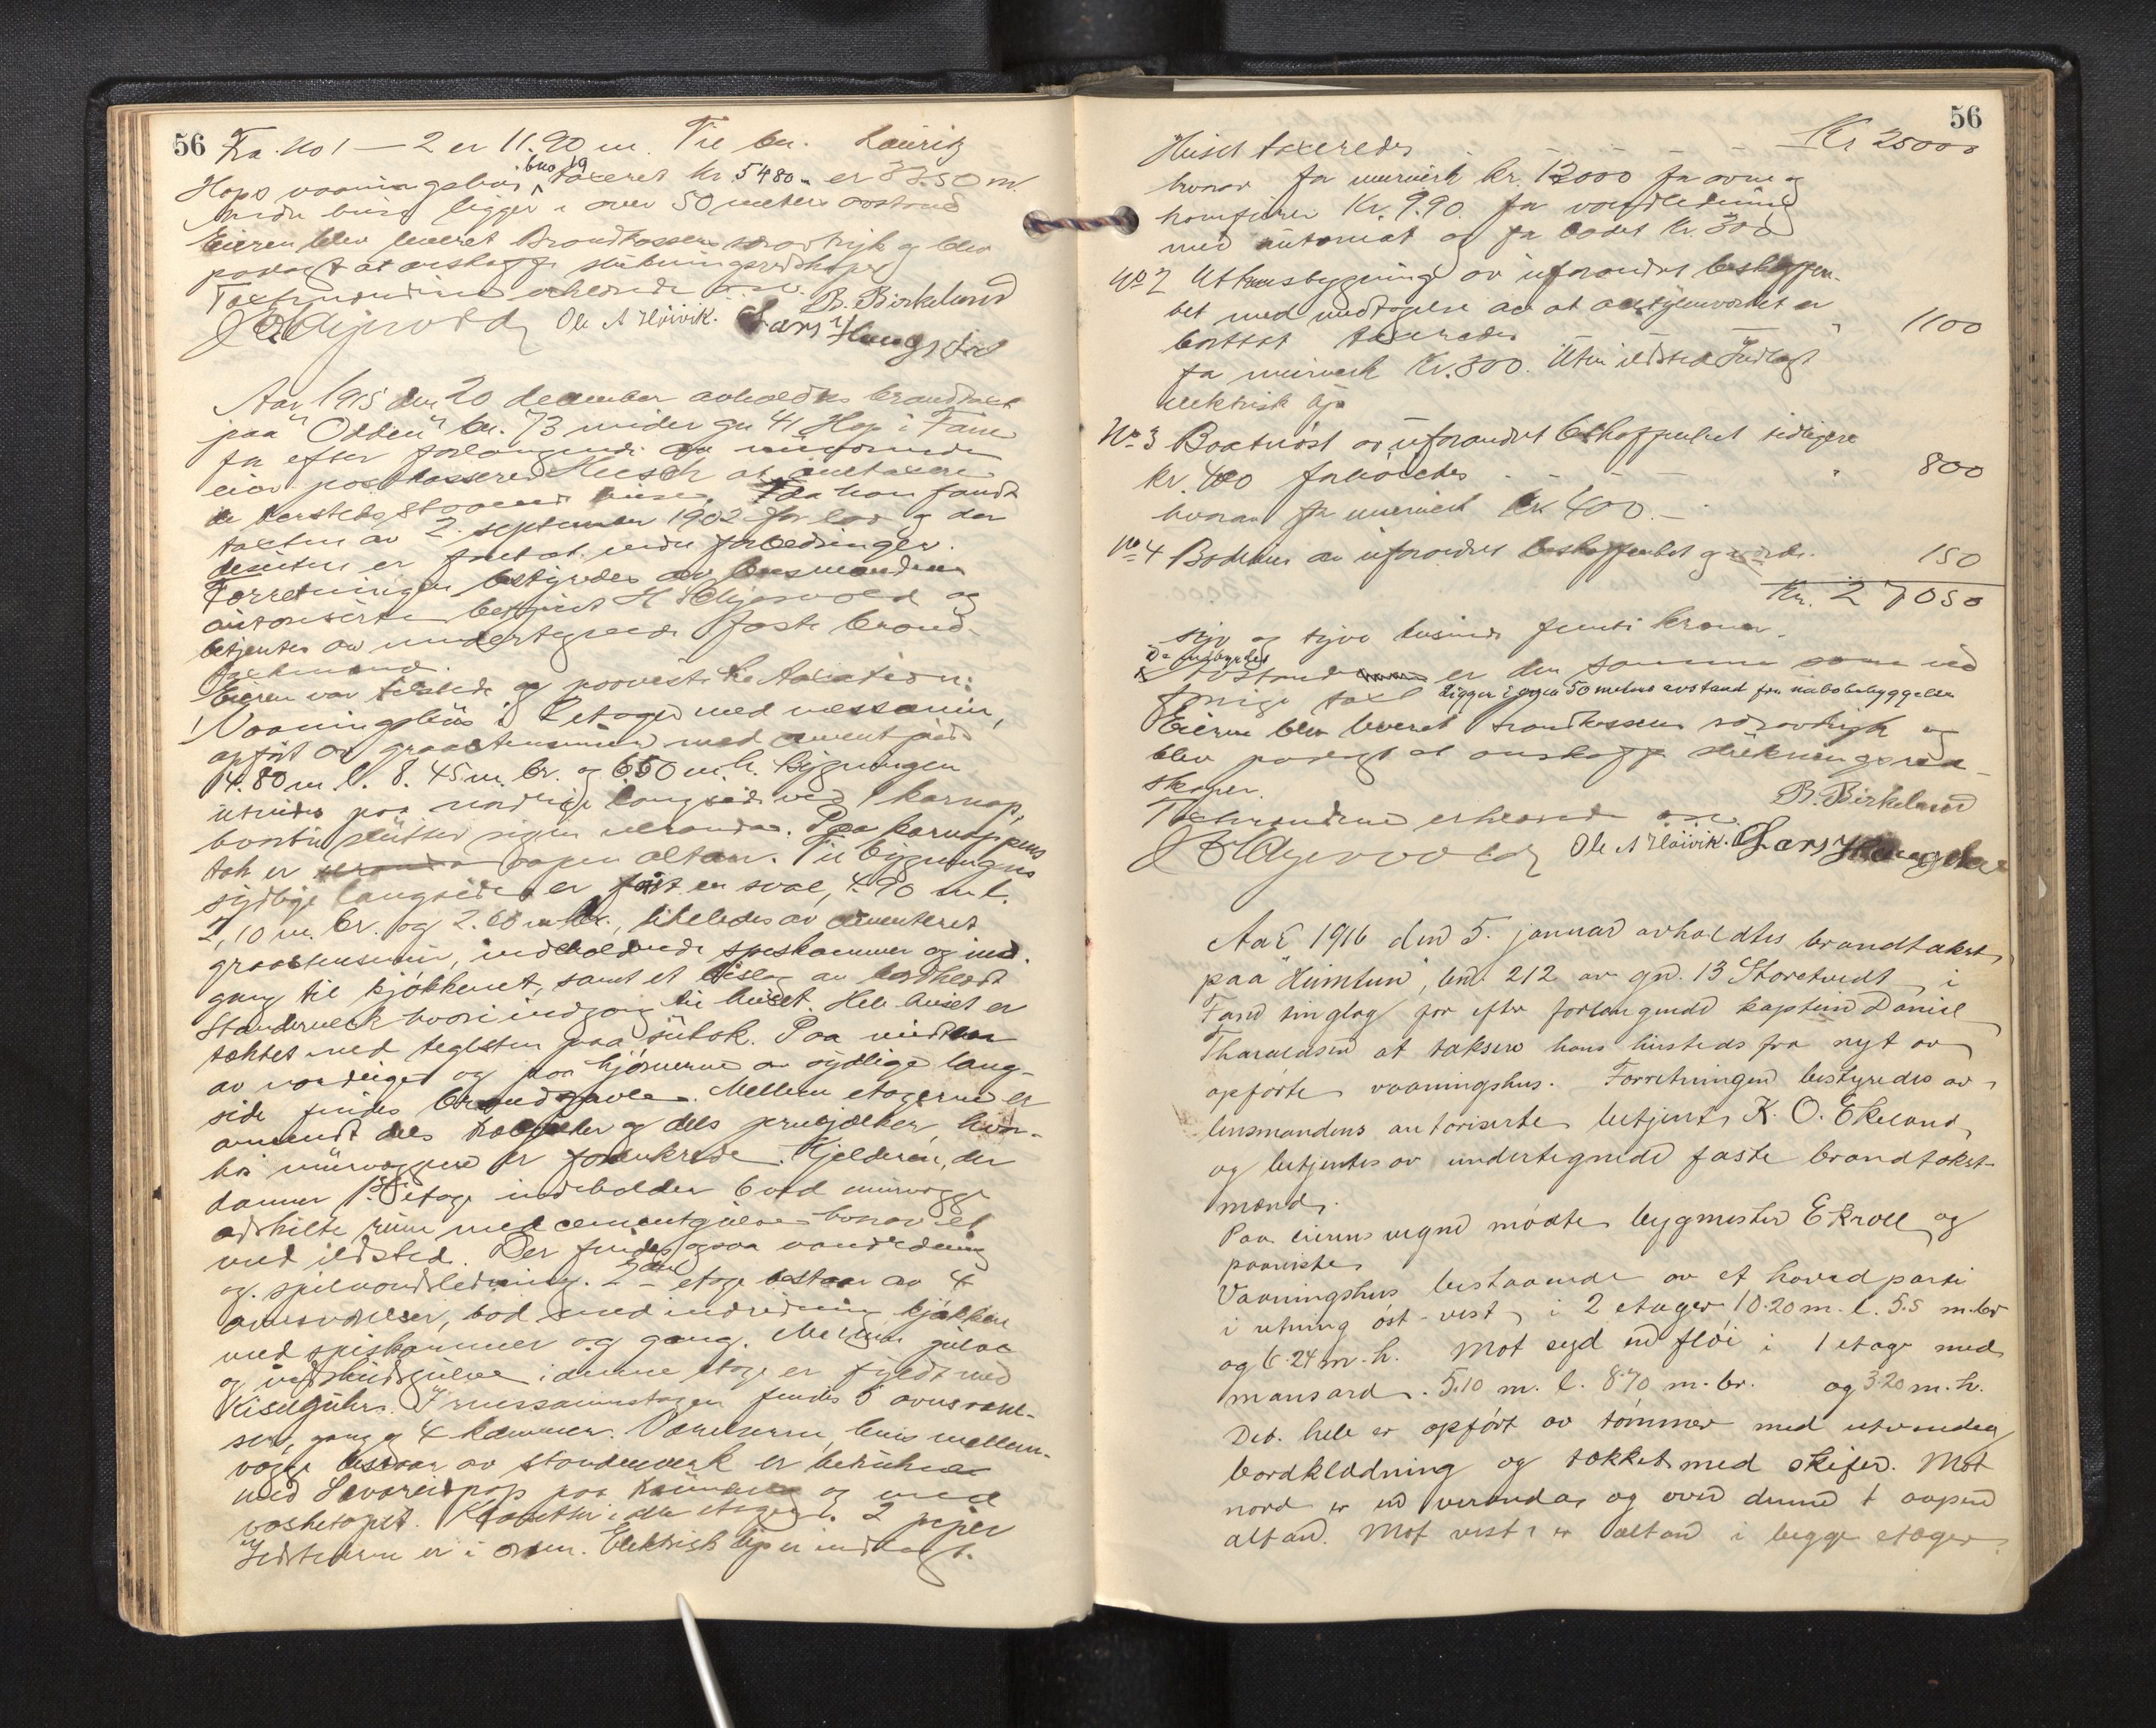 56
Fra No 1 — 2 er 11.90 m. Til bn. Lauritz
Hops vaaningshus bno 19 taxeret kr. 5480 er 37.50 m.
Andre hus ligger i over 50 meters avstand
Eieren blev leveret Brandkassens særavtryk og blev
paalagt at anskaffe slukningsredskaper
Taxtmændene erklærede o.s.v. B. Birkeland
Ole A Høivik. Lars Haugstad
Aar 1915 den 20 december avholdtes brandtaxt
paa "Odden" bn. 73 under gn 41 Hop i Fane
for efter forlangende av nuværende
eier postkasserer at omtaxere
de hersteds staaende huse. Da han fandt
taxten av 2. september 1902 for lav og der
desuten er foretat endel forbedringer.
Forretningen bestyredes av lensmandens
autoriserte betjent og
betjentes av undertegnede faste brand-
taxtmænd.
Eieren var tilstede og paaviste til taxation:
1 Vaaningshus i 2 etager med messanin,
opført av graastensmur med cement
4.80 m l. 8.45 m. br. og 6.50 m. h. Bygningen
utvides paa nordlige langside ved 1 karnap,
hvortil slutter sig en veranda. Paa karnappens
tak er aapen altan. Til bygningens
sydlige langside er føiet en sval, 4.90 m l.
2,10 m. br. og 2.60 m. h., likeledes av cementeret
graastensmur, indeholdende spiskammer og ind-
gang til kjøkkenet, samt et bislag av bordklædt
Standerverk hvori indgang til huset. Hele huset er
tæktet med teglsten paa sutak. Paa midten
av nordsiden og paa hjørnerne av sydlige lang-
side findes brandgavle. Mellem etagerne er
anvendt dels træbjelker og dels jernbjælker, hvor-
til murvæggene er forankrede. Kjelderen, der
danner 1ste etage indeholder 6 ved murvægge
adskilte rum med cementgulv hvorav et
med ildsted. Der findes ogsaa vandledning
og spilvandsledning. 2den etage bestaar av 4
ovnsværelser, bad med indredning kjøkken
med spiskammer og gang. Mellem gulve
og i denne etage er fyldt med
Kiselguhr. I messaninetagen findes 5 ovnsværel-
ser, gang og 4 kammer. Værelserne, hvis mellem-
vægge bestaar av standerverk er betrukne
med pap paa og med
vasketapet. Klosetter i alle etager. 2 piper
Ildstederne er i orden. Elektrisk lys er indlagt.
56
Huset taxeredes — — — Kr 25000
hvorav for murverk kr. 12000 for ovne og
komfurer Kr. 9.90. for vandledning
med automat og for badet Kr. 300
No 2 Uthusbygning av uforandret beskaffen-
het med undtagelse av at acetylenverket er
borttat taxeredes — " 1100
for murverk Kr. 300. Uten ildsted Indlagt
elektrisk lys
No 3 Baatnøst av uforandret beskaffenhet tidligere
kr. 400 forhøiedes — — " 800
hvorav for murverk Kr 400.—
No 4 Badehus av uforandret beskaffenhet og værdi. 150
Kr. 27050
syv og tyve tusinde femti kroner.
De indbyrdes
avstand er den samme som ved
forrige taxt ligger i over 50 meters avstand fra nabobebyggelsen
Eieren blev leveret brandkassens særavtryk og
blev paalagt at anskaffe slukningsred-
skaper.
Taxtmændene erklærede o.s.v. B. Birkeland
Ole A Høivik. Lars Haugstad
Aar 1916 den 5. januar avholdtes brandtakst
paa "Heimtun", bno 212 av gno. 13 Storetvedt, i
Fane tinglag for efter forlangende kaptein Daniel
Tharaldsen at taksere hans hersteds fra nyt av
opførte vaaningshus. Forretningen bestyredes av
lensmandens autoriserte betjent K. O. Ekeland
og betjentes av undertegnede faste brandtakst-
mænd.
Paa eierens vegne møtte bygmester Ekroll og
paaviste
Vaaningshus bestaaende av et hovedparti
i retning øst-vest, i 2 etager 10.20 m. l. 5.5 m. br
og 6.24 m. h. Mot syd en fløi i 1 etage med
mansard. 5.10 m. l. 8.70 m. br. og 3.20 m. h.
Det hele er opført av tømmer med utvendig
bordklædning og tækket med skifer. Mot
nord er en veranda og over denne 1 aapen
altan. Mot vest er altan i begge etager